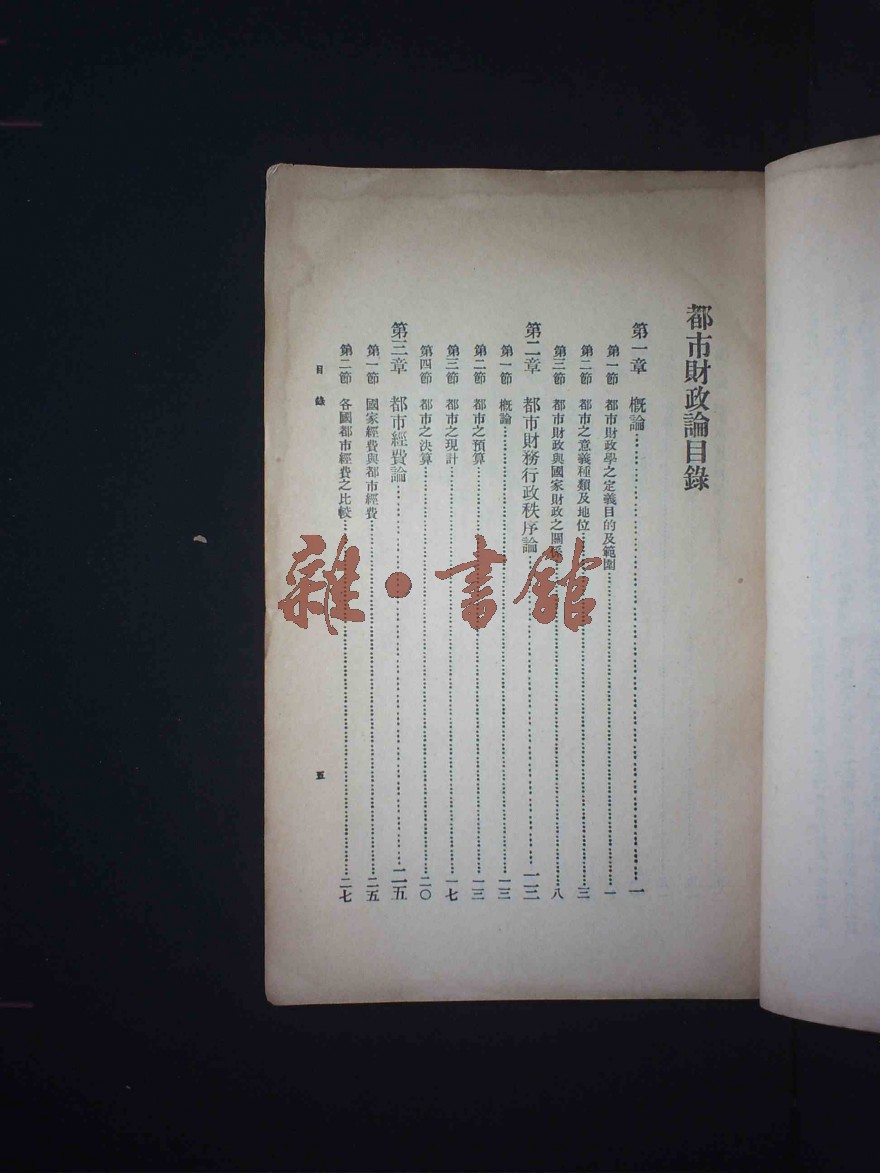 都市財政論目錄
第一章　概論……一
第一節　都市財政學之定義目的及範圍……一
第二節　都市之意義種類及地位……三
第三節　都市財政與國家財政之關係……八
第二章　都市財務行政秩序論……一三
第一節　概論……一三
第二節　都市之預算……一三
第三節　都市之現計……一七
第四節　都市之決算……二〇
第三章　都市經費論……二五
第一節　國家經費與都市經費……二五
第二節　各國都市經費之比較……二七
目錄
五
雜·書館